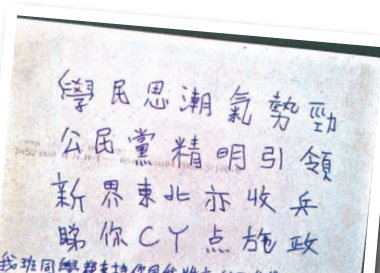 學民思潮氣勢勁
公民黨精明引領
新界東北亦收兵
睇你CY点施政
我班同學都支持你